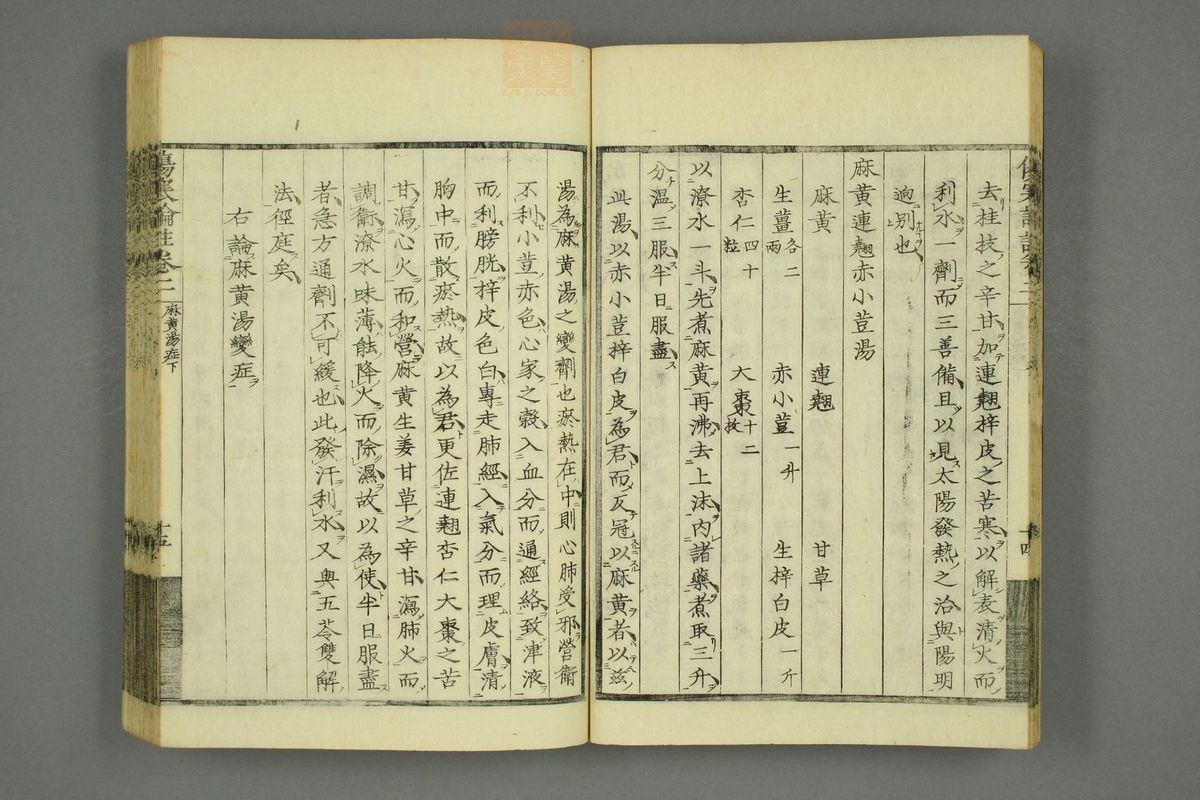 去桂技之辛甘加連翹梓皮之苦寒以解表清火而
利水一劑而三善備且以見太陽發熱之治與陽明
逈別也
麻黄連翹赤小荳湯
麻黄 連翹 甘草
生薑各二兩 赤小荳一升 生梓白皮一斤
杏仁四十粒 大棗十二枚
以潦水一斗先煮麻黄再沸去上沫内諸藥煮取三升
分温三服半日服盡
此湯以赤小荳梓白皮為君而反冠以麻黄者以兹
湯為麻黄湯之變劑也瘀熱在中則心肺受邪營衛
不利小荳赤色心家之糓入血分而通經絡致津液
而利膀胱梓皮色白專走肺經入氣分而理皮膚清
胸中而散瘀熱故以為君更佐連翹杏仁大棗之苦
甘瀉心火而和營麻黄生姜甘草之辛甘瀉肺火而
調衛潦水味薄能降火而除濕故以為使半日服盡
者急方通劑不可緩也此發汗利水又與五苓雙解
法徑庭矣
右論麻黄湯變症
傷寒論註卷二
麻黄湯症下
十五
十四